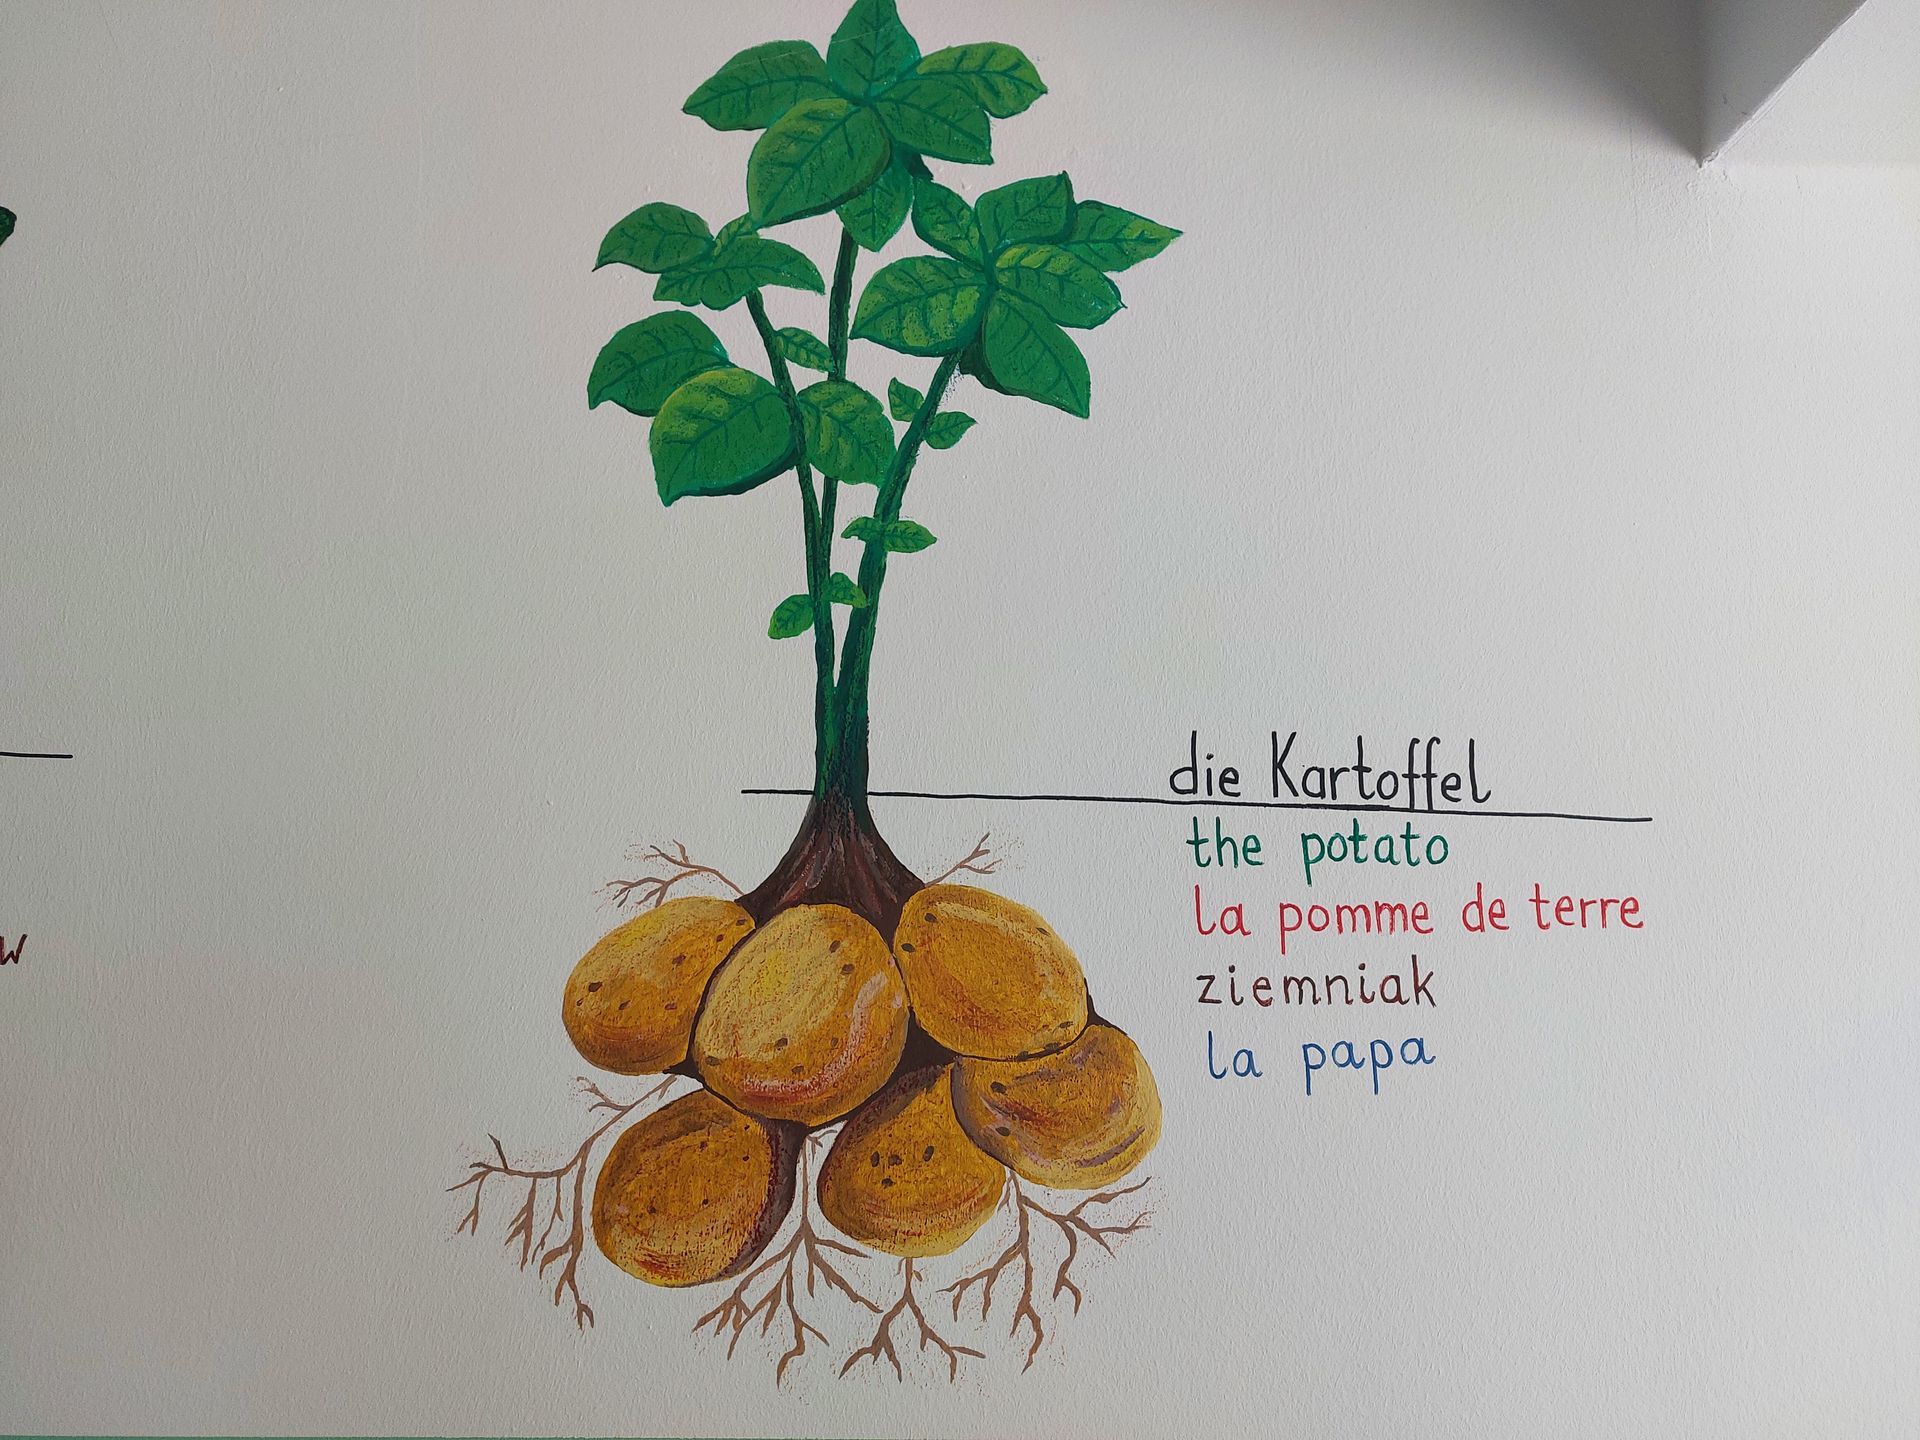 die Kartoffel
the potato
la pomme de terre
ziemniak
la papa